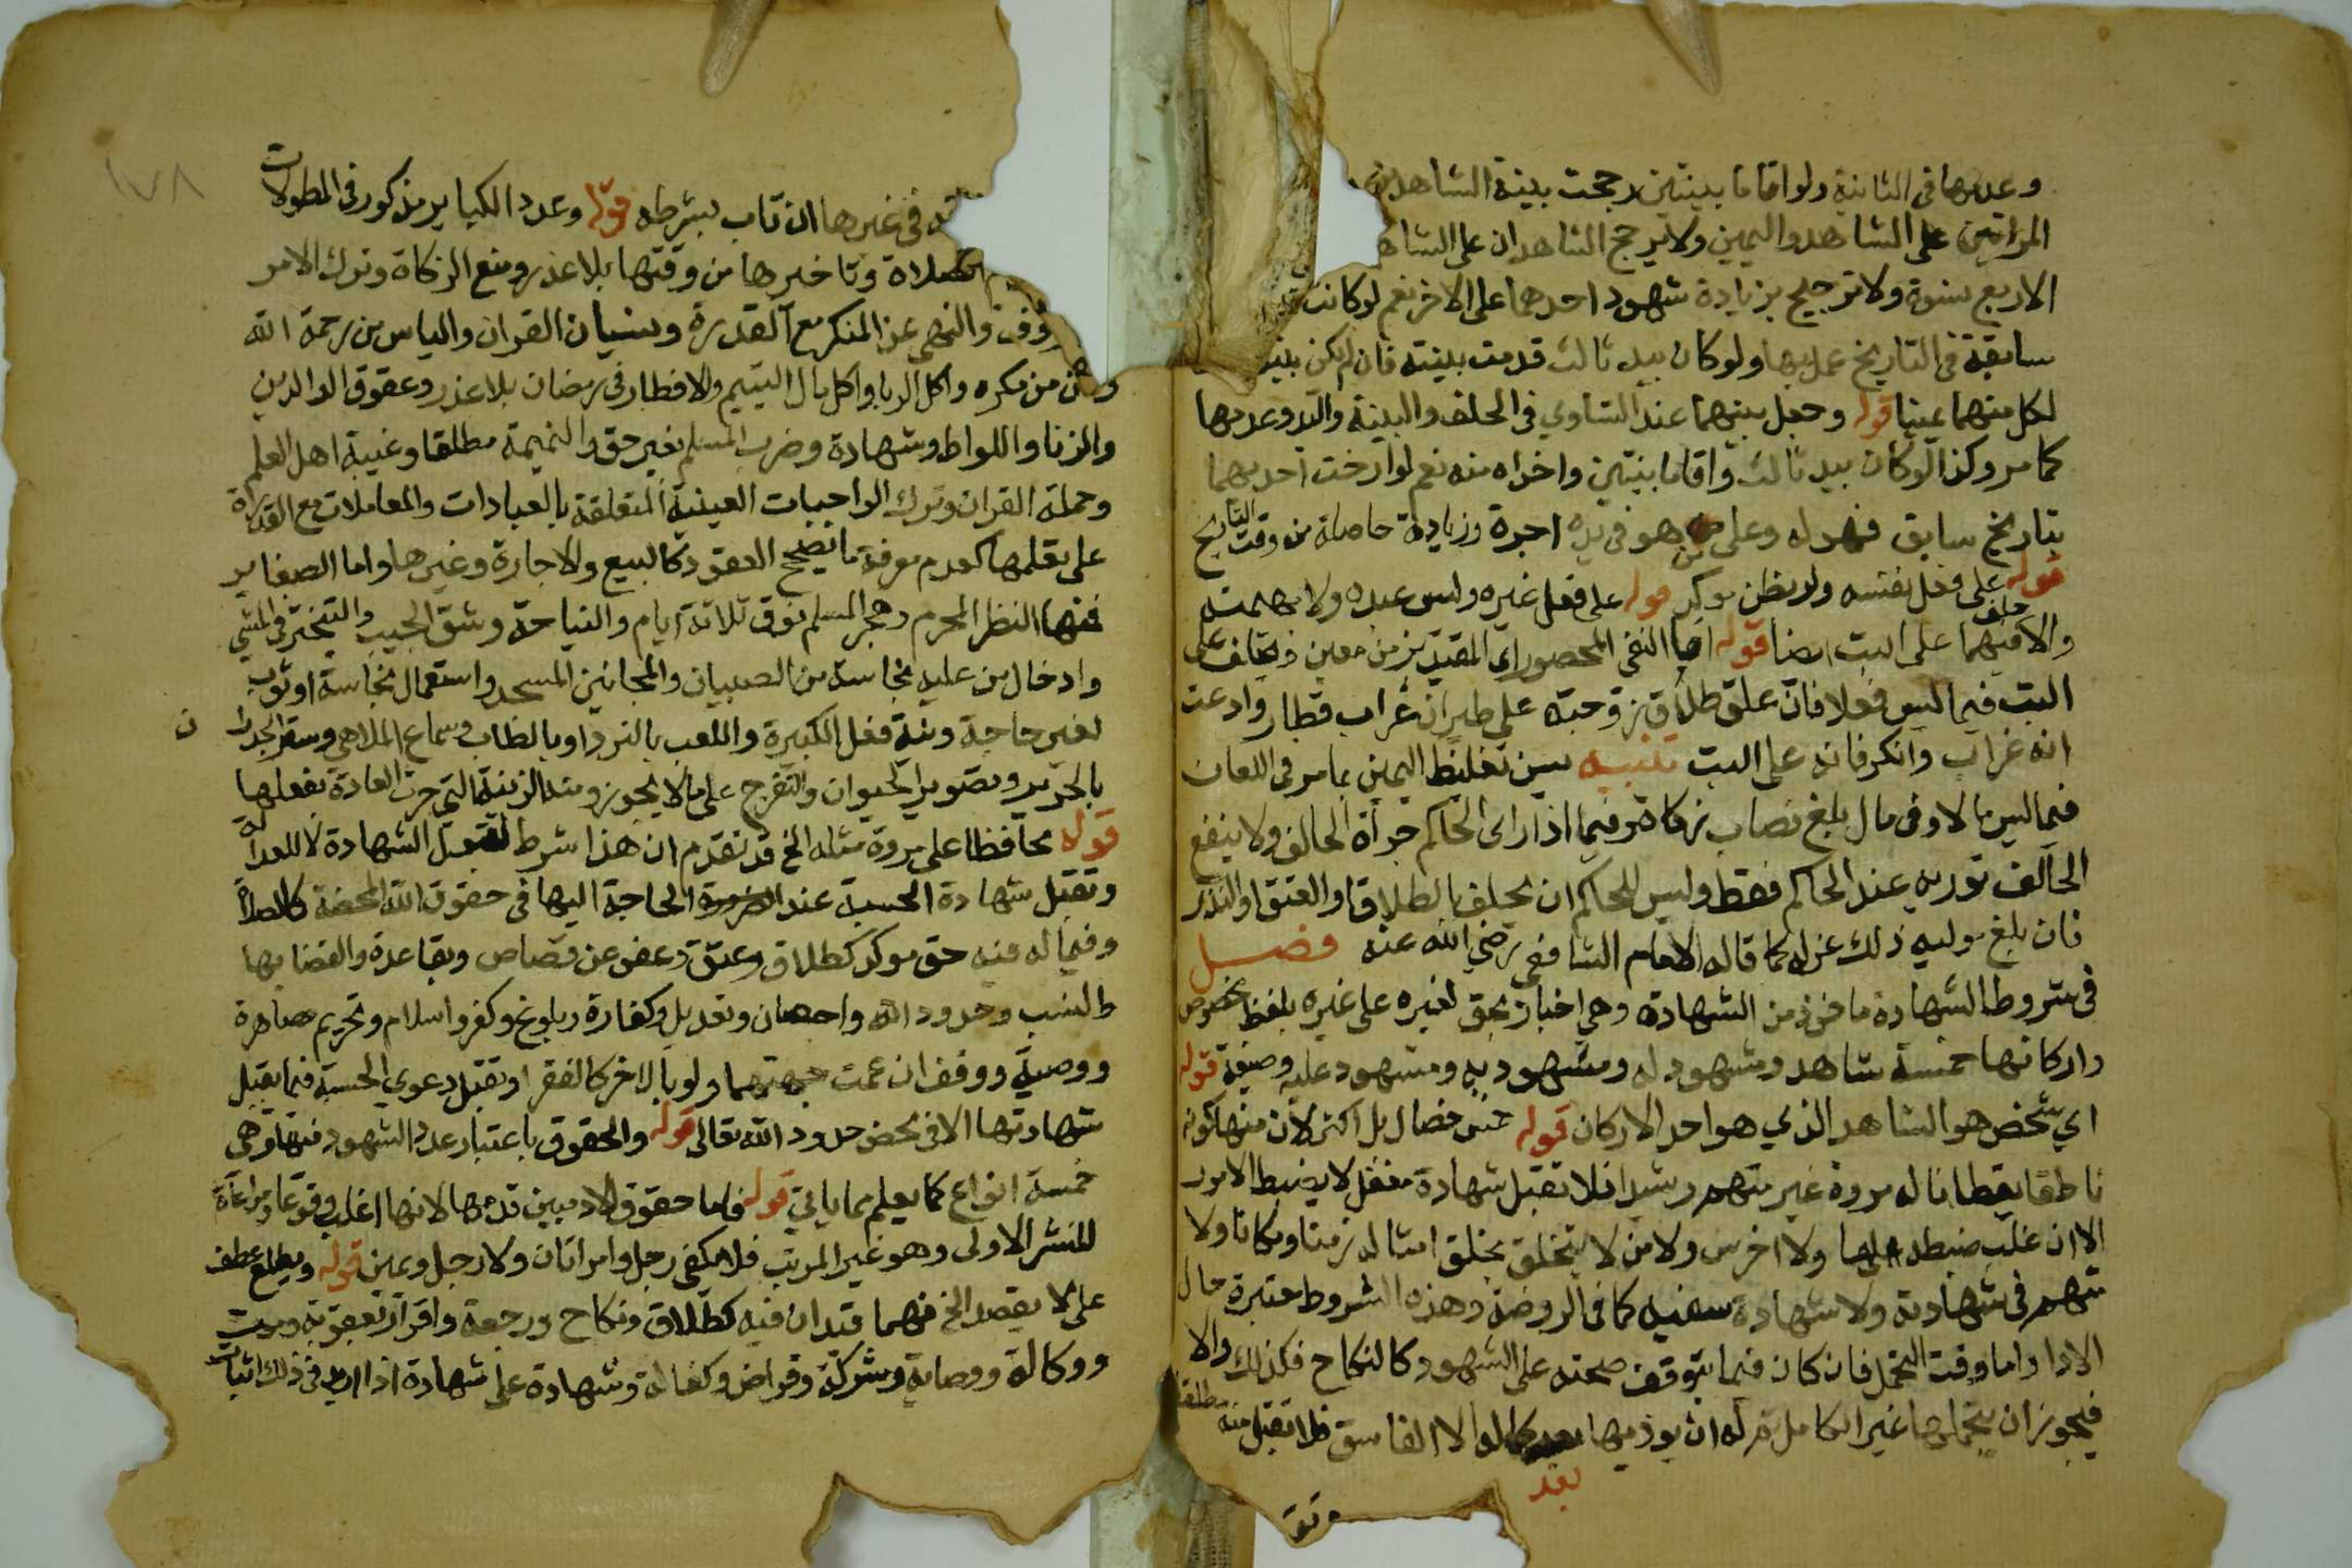 وعدمها فى الثانية ولو اقاما بينتين رجحت بينة الشاهد
المراتين على الشاهد واليمين ولا يرجح الشاهدان على
الاربع نسوة ولا ترجيح بزيادة شهود احدهما على الاخر نعم لو كانت
سابقة فى التاريخ عمل بها ولو كان بيد ثالث قدمت بينته فان لم يكن
لكل منهما عينا قوله وجعل بينهما عند التساوي فى الحلف والبينة واليد وعدمها
كما مر وكذا لو كان بيد ثالث واقاما بينتين واخذاه منه نعم لو ارخت احديهما
بتاريخ سابق فهو له وعلى من هو فى يده اجرة وزيادة حاصلة من وقت التاريخ
قوله على فعل نفسه ولو بظن موكد قوله على فعل غيره وليس عبده ولا بهيمته
والا فيهما حلف على البت ايضا قوله اما النفى المحصور اى المقيد بزمن معين فيحلف على
البت فيما ليس فعلا فان علق طلاق زوجته على طيران غراب فطار وادعت
انه غراب وانكر فانه على البت تنبيه يسن تغليظ اليمين بما مر فى اللعان
فيما ليس مالا وفى مال بلغ نصاب زكاة وفيما اذا راى الحاكم جرأة الحالف ولا ينفع
الحالف تورية عند الحاكم فقط وليس للحاكم ان يحلف بالطلاق او العتق او النذر
فان بلغ موليه ذلك عزله كما قاله الامام الشافعى رضى الله عنه فصل
فى شروط الشهادة ماخوذ من الشهادة وهى اخبار بحق لغيره على غيره بلفظ مخصوص
واركانها خمسة شاهد ومشهود له ومشهود به ومشهود عليه وصيغة قوله
اي شخص هو الشاهد الذي هو احد الاركان قوله خمس خصال بل اكثر لان منها كونه
ناطقا يقظا ناله مروة غير متهم رشيدا فلا تقبل شهادة مغفل لا يضبط الامور
الا ان غلب ضبطه لها ولا اخرس ولا من لا يتخلق بخلق امثاله زمنا ومكانا ولا
متهم فى شهادته ولا شهادة سفيه كما فى الروضة وهذه الشروط معتبرة حال
الادا واما وقت التحمل فان كان فيما يتوقف صحته على الشهود كالنكاح فكذلك والا
فيجوز ان يتحملها غير الكامل ثم له ان يوديها بعد كماله الا الفاسق فلا تقبل منه مطلقا
بعد
فى غيرها ان تاب بشرطه قوله وعدد الكباير مذكور فى المطولات
الصلاة وتاخيرها من وقتها بلا عذر ومنع الزكاة وترك الامر
والنهى عن المنكر مع القدرة ونسيان القران والياس من رحمة الله
من مكره واكل الربا واكل مال اليتيم والافطار فى رمضان بلا عذر وعقوق الوالدين
والزنا واللواط وشهادة وضرب المسلم بغير حق والنميمة مطلقا وغيبة اهل العلم
وحملة القران وترك الواجبات العينية المتعلقة بالعبادات والمعاملات مع القدرة
على تعلمها كعدم معرفة ما يصحح العقود كالبيع والاجارة وغيرها واما الصغاير
فمنها النظر المحرم وهجر المسلم فوق ثلاثة ايام والنياحة وشق الجيب والتبختر فى المشي
وادخال من عليه نجاسة من الصبيان والمجانين المسجد واستعمال نجاسة او ثوب
لغير حاجة ونية فعل الكبيرة واللعب بالنرد او بالطاب وسماع الملاهى وستر الجدران
بالحرير وتصوير الحيوان والتفرج على ما لا يجوز ومنه الزينة التي جرت العادة بفعلها
قوله محافظا على مروة مثله الخ قد تقدم ان هذا شرط لقبول الشهادة لا للعدالة
وتقبل شهادة الحسبة عند الحاجة اليها فى حقوق الله المحضة كالصلاة
وفيما له فيه حق موكد كطلاق وعتق وعفو عن قصاص وبقا عدة وانقضايها
والنسب وحدود الله واحصان وتعديل وكفارة وبلوغ وكفر واسلام وتحريم مصاهرة
ووصية ووقف ان عمت جهتهما ولو بالاخر كالفقرا وتقبل دعوي الحسبة فيما يقبل
شهادتها الا فى محض حدود الله تعالى قوله والحقوق باعتبار عدد الشهود فيها وهى
خمسة انواع كما يعلم مما ياتي قوله فاما حقوق الادميين قدمها لانها اغلب وقوعا ومراعاة
للنشر الاولى وهو غير المرتب فلا يكفى رجل وامراتان ولا رجل ويمين قوله ويطلع عطف
على لا يقصد الخ فهما قيدان فيه كطلاق ونكاح ورجعة واقرار بعقوبة وموت
ووكالة ووصاية وشركة وقراض وكفالة وشهادة على شهادة اذا اريد فى ذلك اثبات